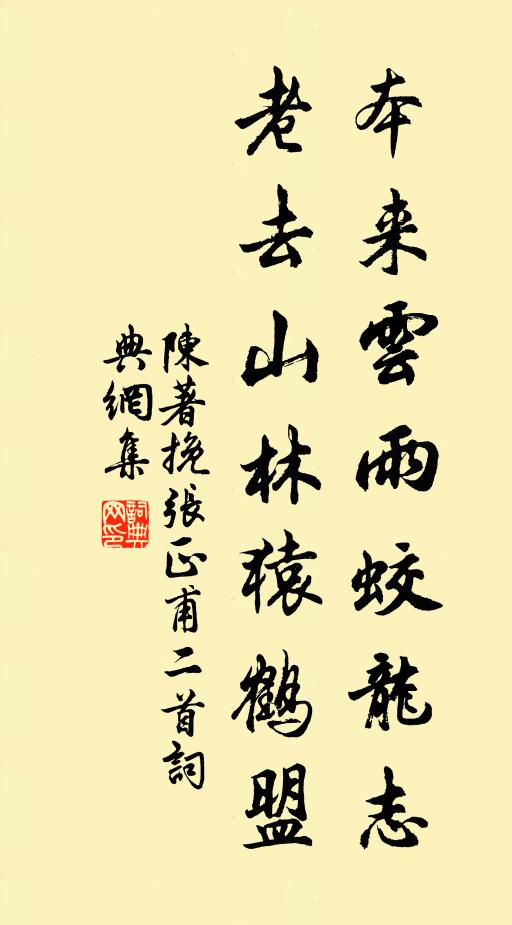 本来雲雨蛟龍志
老去山林猿鶴盟
陳著挽張正甫二首詞
典網集
詞典網印